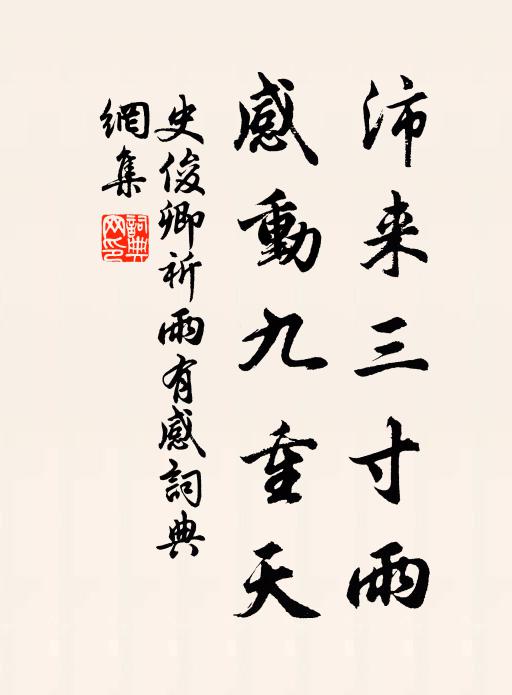 沛来三寸雨
感動九重天
史俊卿祈雨有感詞典
網集
詞典
网印